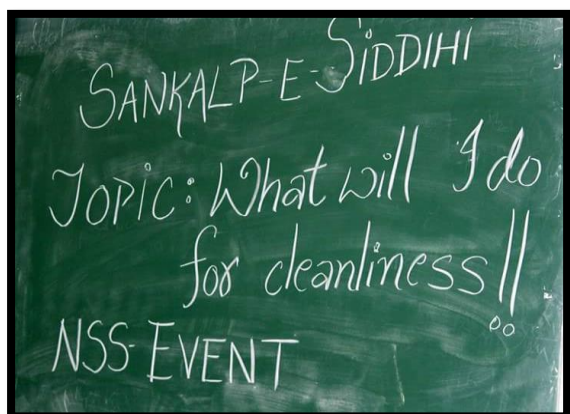 SANKALP-E-SIDDIHI
TOPIC: What will I do
for cleanliness!!
NSS-EVENT